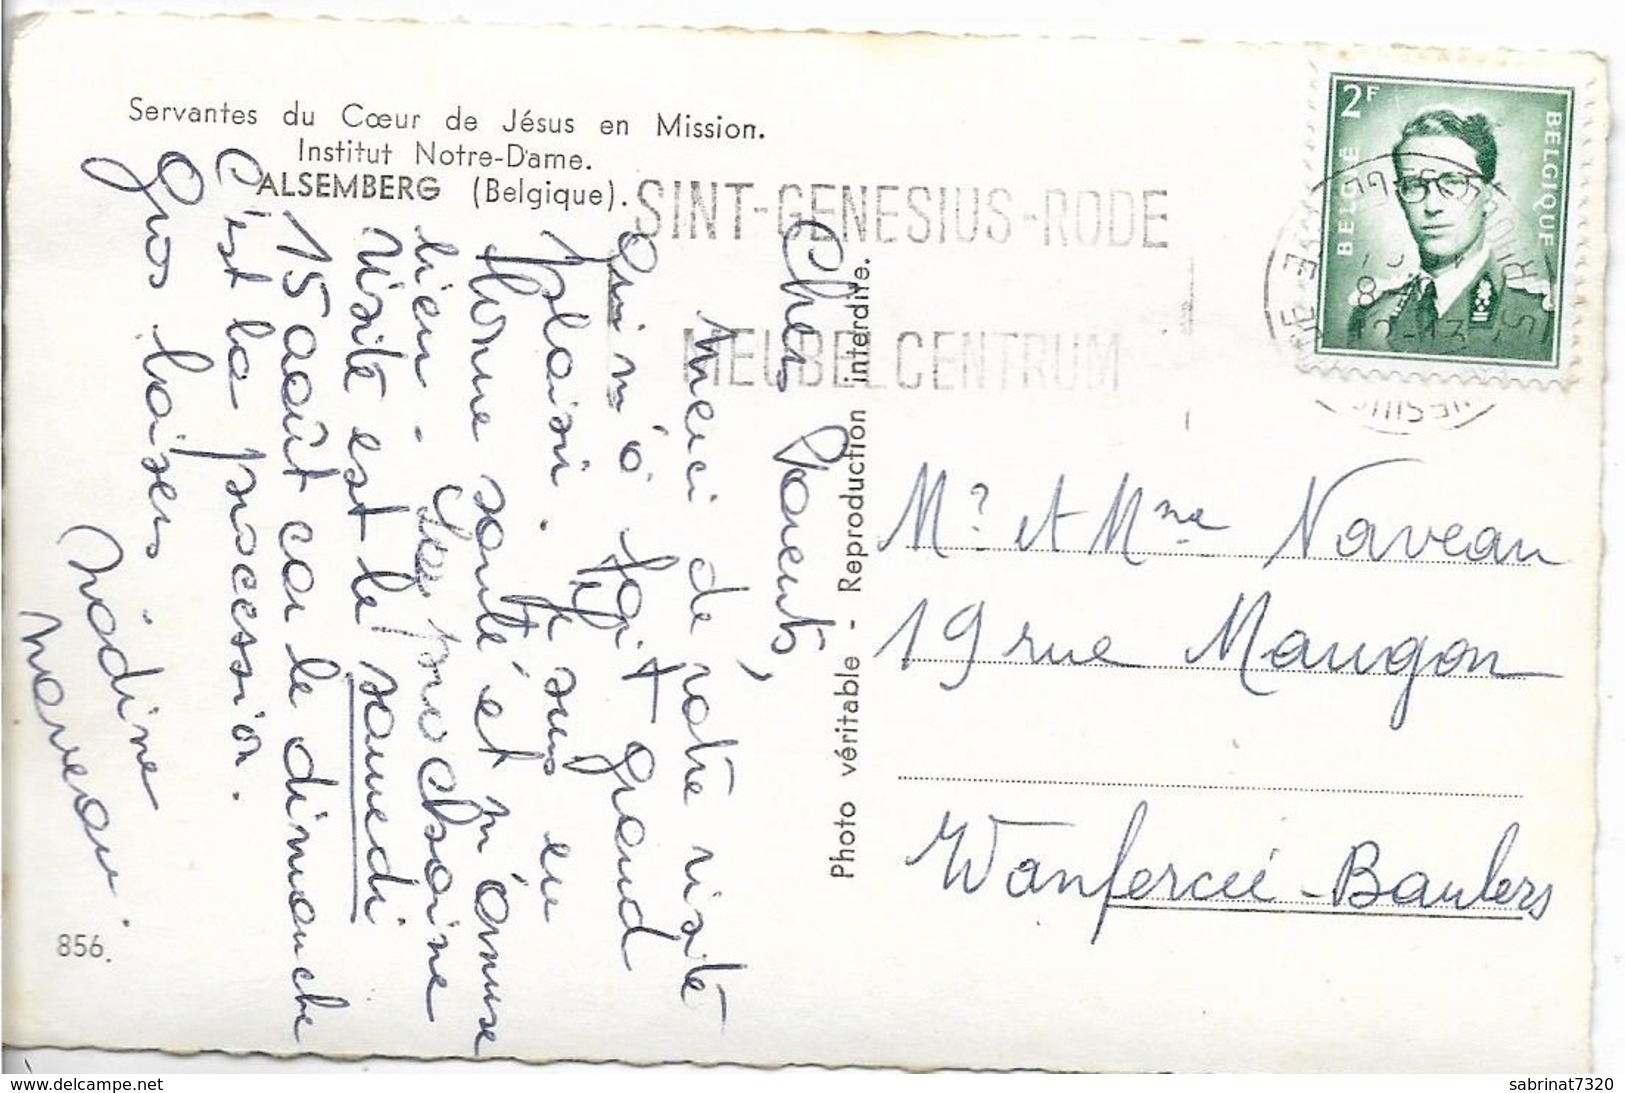 Servantes du Cœur de Jésus en Mission.
Institut Notre-Dame.
ALSEMBERG (Belgique).
SINT-GENESIUS-RODE
MEUBELCENTRUM
2F
BELGIË
BELGIQUE
Chers Parents,
Merci de votre visite
qui m'a fait grand
plaisir. Je suis en
bonne santé et m'amuse
bien. La prochaine
visite est le samedi
15 août car le dimanche
c'est la procession.
Gros baisers.
Nadine
Naveau.
856.
Photo véritable - Reproduction interdite.
Mr et Mme Naveau
19 rue Maugon
Wanfercée-Baulers
sabrinat7320